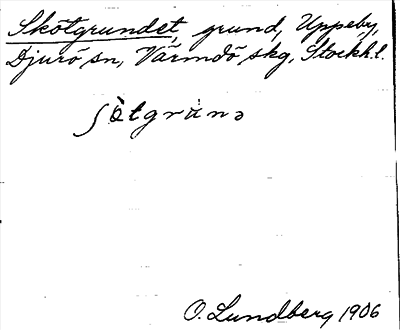 Skötgrundet, grund, Uppeby,
Djurö sn, Värmdö skg, Stockh.l.
O. Lundberg 1906